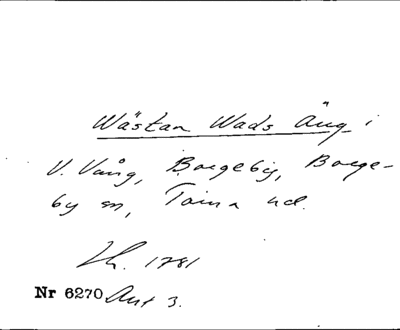 Wästan Wads Äng i
V. Vång, Borgeby, Borge-
by sn, Torna hd.
Lh. 1781
Nr 6270 Akt 3.